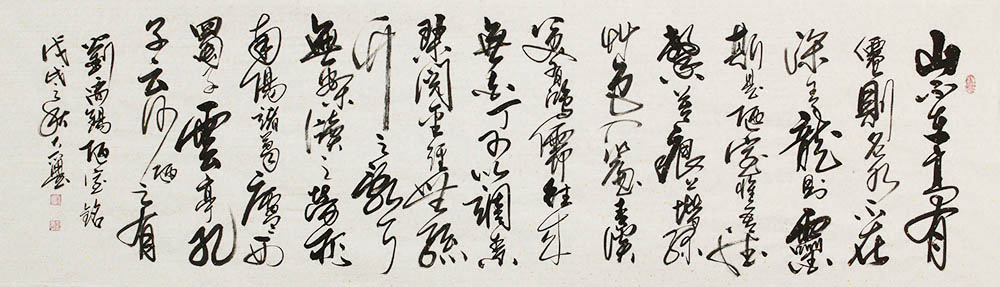 山不在高有
僊則名水不在
深有龍則靈
斯是陋室惟吾德
馨苔痕上階緑
艸色入簾青談
笑有鴻儒往来
無白丁可以調素
琴閲金經無絲
竹之亂耳
無案牘之勞形
南陽諸葛廬西
蜀子雲亭孔
子云何陋之有
劉禹錫陋室銘
戊戌之秋大